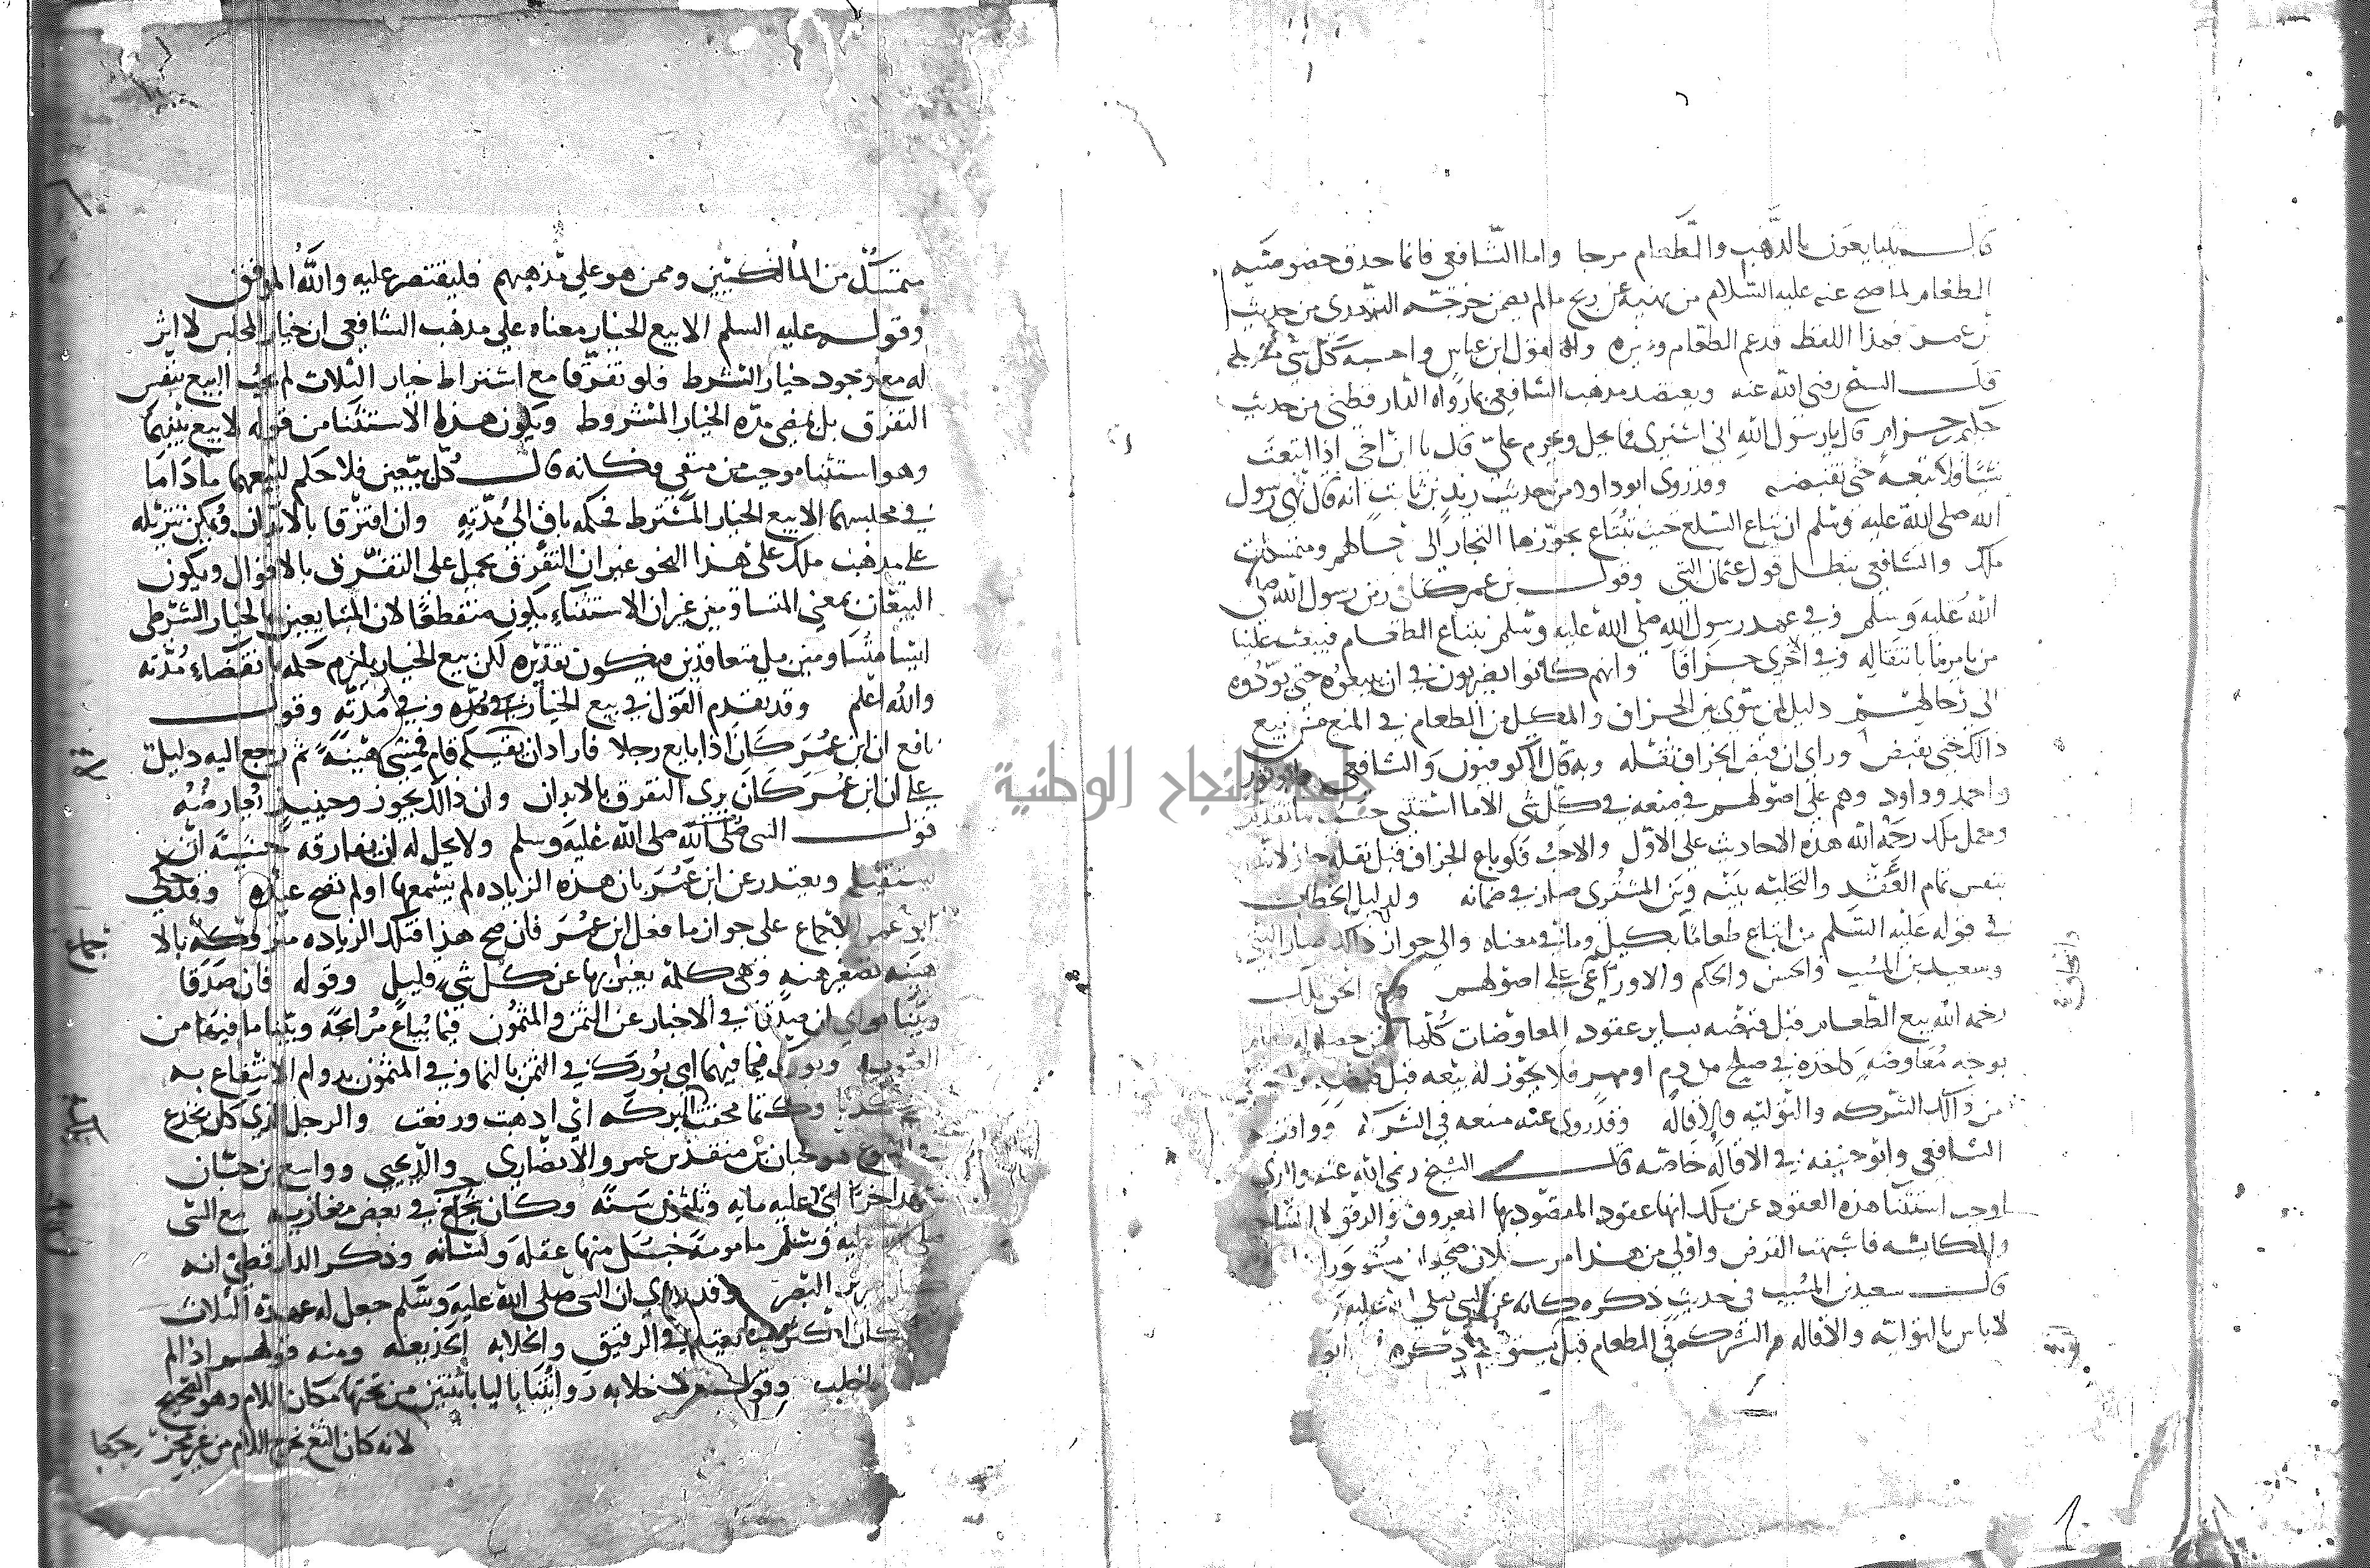 قال يتبايعون بالذهب والطعام مرجا واما الشافعي فانما حذق خصوصيه
الطعام لما صح عنه عليه السلام من نهيه عن ربح ما لم يضمن خرجه الترمذي من حديث
بن عمر فهذا اللفظ قد عم الطعام وغيره ولقول ابن عباس واحسب كل شي مثله
قال الشيخ رضى الله عنه ويعتضد مذهب الشافعي بما رواه الدارقطني من حديث
حكيم بن حزام قال يا رسول الله اني اشتري فما يحل وما يحرم علي قال يا ابن اخي اذا ابتعت
شيا فلا تبعه حتى تقبضه وقد روى ابو داود من حديث زيد بن ثابت انه قال نهى رسول
الله صلى الله عليه وسلم ان تباع السلع حيث تبتاع حتى يحوزها التجار الى رحالهم ومتمسكات
ملك والشافعي تبطل قول عثمان البتي وقول بن عمر كنا في زمن رسول الله صلى
الله عليه وسلم وفي عهد رسول الله صلى الله عليه وسلم نبتاع الطعام فيبعث علينا
من يامرنا بانتقاله وفي اخرى جزافا وانهم كانوا يضربون في ان يبيعوه حتى يؤدوه
الى رحالهم دليل لمن سوى بين الجزاف والمكيل من الطعام في المنع من بيع
ذالك حتى يقبض وراى ان قبض الجزاف نقله وبه قال الكوفيون والشافعي وابو ثور
واحمد وداود وهم على اصولهم في منعه في كل شى الا ما استثني حسب ما تقدم
وحمل ملك رحمه الله هذه الاحاديث على الاولى والاحب فلو باع الجزاف قبل نقله جاز لانه
بنفس تمام العقد والتخليه بينه وبين المشترى صار في ضمانه ولدليل الخطاب
في قوله عليه السلم من ابتاع طعاما بكيل وما في معناه والى جواز ذالك صار البتي
وسعيد بن المسيب والحسن والحكم والاوزاعي على اصولهم والحق ملك
رحمه الله بيع الطعام قبل قبضه بساير عقود المعاوضات كلها فمن حصل له طعام
بوجه معاوضة كاخذه في صلح من دم او مهر فلا يجوز له بيعه قبل قبضه
من ذالك الشركه والتوليه والاقاله وقد روى عنه منعه في الشركه ووافقه
الشافعي وابو حنيفه في الاقاله خاصه قال الشيخ رضى الله عنه والذى
اوجب استثنا هذه العقود عن ملك انها عقود المقصود بها المعروف والرفق لا المشاحه
والمكايسه فاشبهت القرض واولى من هذا مرسلان صحيحان مشهوران
قال سعيد بن المسيب في حديث ذكره كانه عن النبي صلى الله عليه
لا باس بالتوليه والاقاله والشركه في الطعام قبل يستوفي ذكره ابو
متمسك من المالكيين وممن هو على مذهبهم فليقتصر عليه والله الموفق
وقوله عليه السلم الا بيع الخيار معناه على مذهب الشافعي ان خيار المجلس لا اثر
له مع وجود خيار الشرط فلو تفرقا مع اشتراط خيار الثلاث لم يجب البيع بنفس
التفرق بل بمضى مدة الخيار المشروط ويكون هذا الاستثنا من قوله لا بيع بينهما
وهو استثنا موجب من منفي فكانه قال كل بيعين فلا حكم لبيعهما ما داما
في مجلسهما الا بيع الخيار المشترط فحكمه باق الى مدته وان افترقا بالابدان ويمكن تنزيله
على مذهب ملك على هذا النحو غير ان التفرق يحمل على التفرق بالاقوال ويكون
البيعان بمعنى المتساومين غير ان الاستثناء يكون منقطعا لان المتبايعين بالخيار الشرطي
ليسا متساومين بل متعاقدين فيكون تقديره لكن بيع الخيار يلزم حكمه بانقضاء مدته
والله اعلم وقد تقدم القول في بيع الخيار وفي مدته وقول
نافع ان ابن عمر كان اذا بايع رجلا فاراد ان لا يقيله قام فمشى هنيهة ثم رجع اليه دليل
على ان ابن عمر كان يرى التفرق بالابدان وان ذالك يجوز وحينيذ يعارضه
قول النبى صلى الله عليه وسلم ولا يحل له ان يفارقه خشية ان
يستقيله ويعتذر عن ابن عمر بان هذه الزياده لم يسمعها او لم تصح عنده وقد حكى
ابو عمر الاجماع على جواز ما فعل ابن عمر فان صح هذا فتلك الزياده متروكة بالا
هنيهة تصغير هنه وهى كلمة يعبر بها عن كل شي قليل وقوله فان صدقا
وبينا اي ان صدقا في الاخبار عن الثمن والمثمون فيما يباع مرابحة وبينا ما فيهما من
العيوب وبورك فيما فيهما اي بورك في الثمن بالنما وفي المثمون بدوام الانتفاع به
كذبا وكتما محقت البركه اي اذهبت ورفعت والرجل الذي كان يخدع
في البيوع هو حبان بن منقذ بن عمرو الانصاري والد يحيى وواسع بن حبان
شهد احدا اتى عليه مايه وثلثون سنه وكان شج في بعض مغازيه مع النبى
صلى الله عليه وسلم مامومة خبل منها عقله ولسانه وذكر الدارقطني انه
ضرير البصر وقد روي ان النبى صلى الله عليه وسلم جعل له عهدة الثلاث
كان في الرقيق والخلابه الخديعه ومنه قولهم اذا لم
فاخلب وقوله خلابه رويناها باليا باثنتين من تحتها مكان اللام وهو الصحيح
لانه كان الثغ يخرج اللام من غير مخرجها